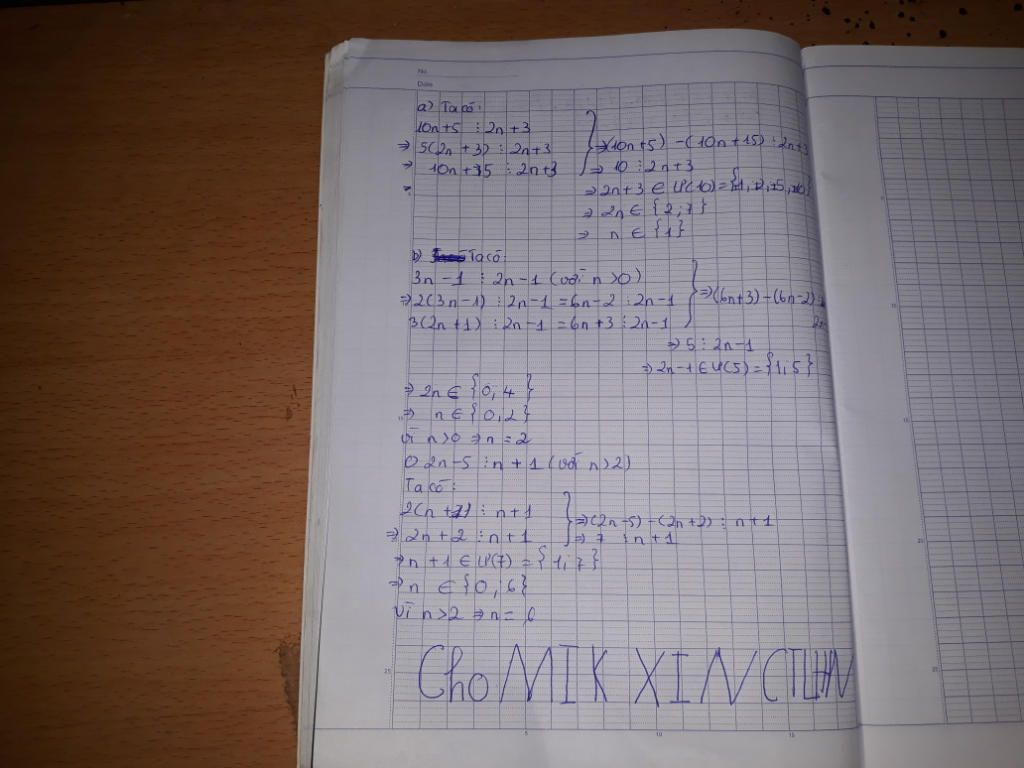 No.
Date
a) Ta có:
10n+5 ⋮ 2n+3
⇒ 5(2n+3) ⋮ 2n+3
⇒ 10n+15 ⋮ 2n+3
⇒ (10n+5) - (10n+15) ⋮ 2n+3
⇒ 10 ⋮ 2n+3
⇒ 2n+3 ∈ Ư(10) = {1, 2, 5, 10}
⇒ 2n ∈ {2, 7}
⇒ n ∈ {1}
b) Ta có:
3n-1 ⋮ 2n-1 (với n>0)
⇒ 2(3n-1) ⋮ 2n-1 = 6n-2 ⋮ 2n-1
3(2n+1) ⋮ 2n-1 = 6n+3 ⋮ 2n-1
⇒ (6n+3) - (6n-2) ⋮
⇒ 5 ⋮ 2n-1
⇒ 2n-1 ∈ Ư(5) = {1, 5}
⇒ 2n ∈ {0, 4}
⇒ n ∈ {0, 2}
Vì n>0 ⇒ n = 2
2n-5 ⋮ n+1 (với n>2)
Ta có:
2(n+1) ⋮ n+1
⇒ 2n+2 ⋮ n+1
⇒ (2n-5) - (2n+2) ⋮ n+1
⇒ 7 ⋮ n+1
⇒ n+1 ∈ Ư(7) = {1, 7}
⇒ n ∈ {0, 6}
Vì n>2 ⇒ n = 6
Cho MIK XIN CTLHN